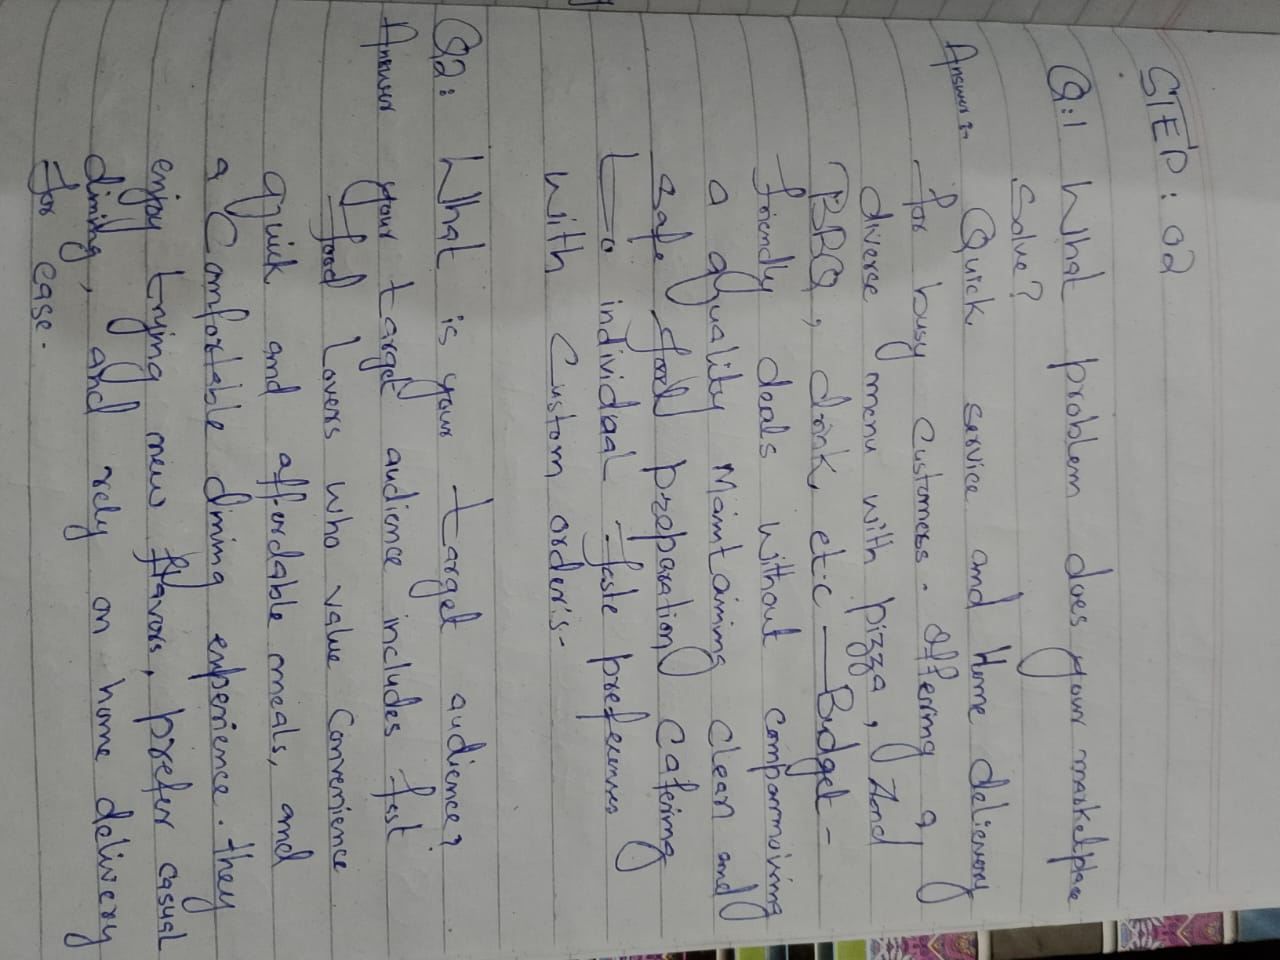 STEP: 02
Q:1 What problem does your marketplace
Solve?
Answer:- Quick service and Home delievery
for busy customers. offering a
diverse menu with pizza, Zand
BBQ, drink, etc — Budget-
friendly deals without compromising
a quality Maintaining clean and
safe food preparation, Catering
to individaal taste preferences
with Custom order's-
Q2: What is your target audience?
Answer your target audience includes fast
food Lovers who value Convenience
quick and affordable meals, and
a Comfortable dining experience. they
enjoy trying new flavors, prefer casual
dining, and rely on home delivery
for ease.